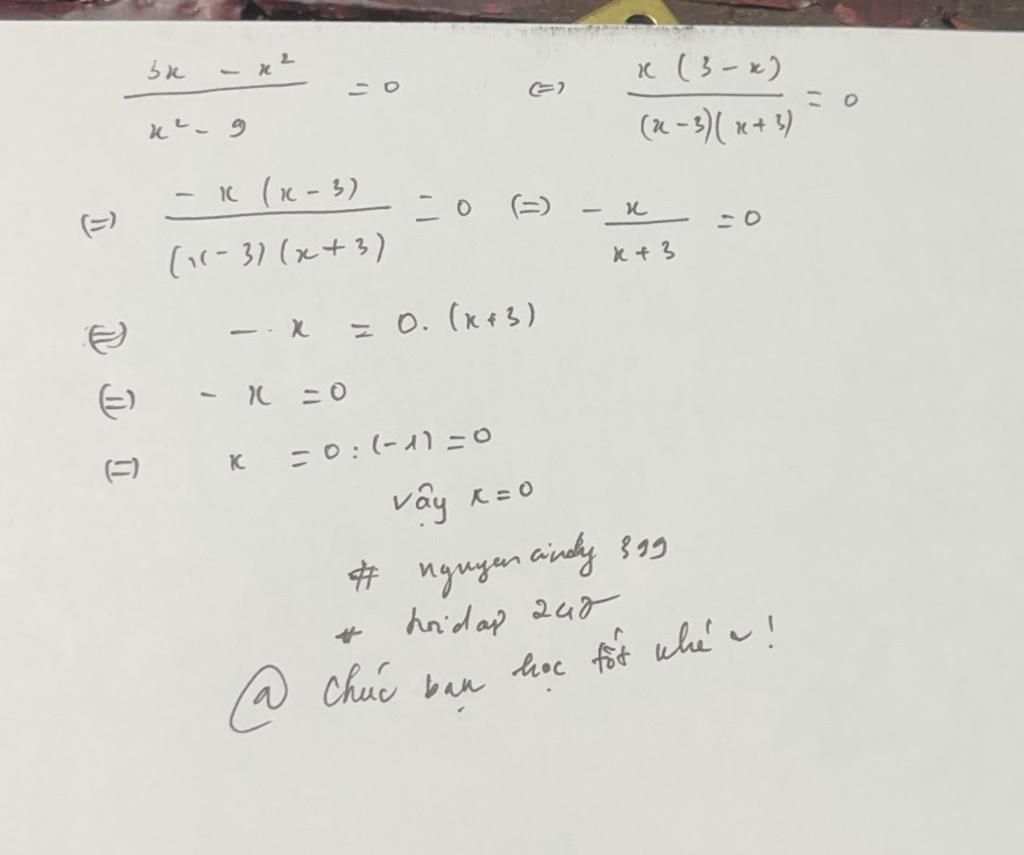 (3x - x²)/(x² - 9) = 0 (=) x(3 - x)/((x - 3)(x + 3)) = 0
(=) -x(x - 3)/((x - 3)(x + 3)) = 0 (=) - x/(x + 3) = 0
(=) - x = 0. (x + 3)
(=) - x = 0
(=) x = 0 : (-1) = 0
vậy x = 0
# nguyen cindy 399
# hoidap 247
@ Chúc bạn học tốt nhé ~!